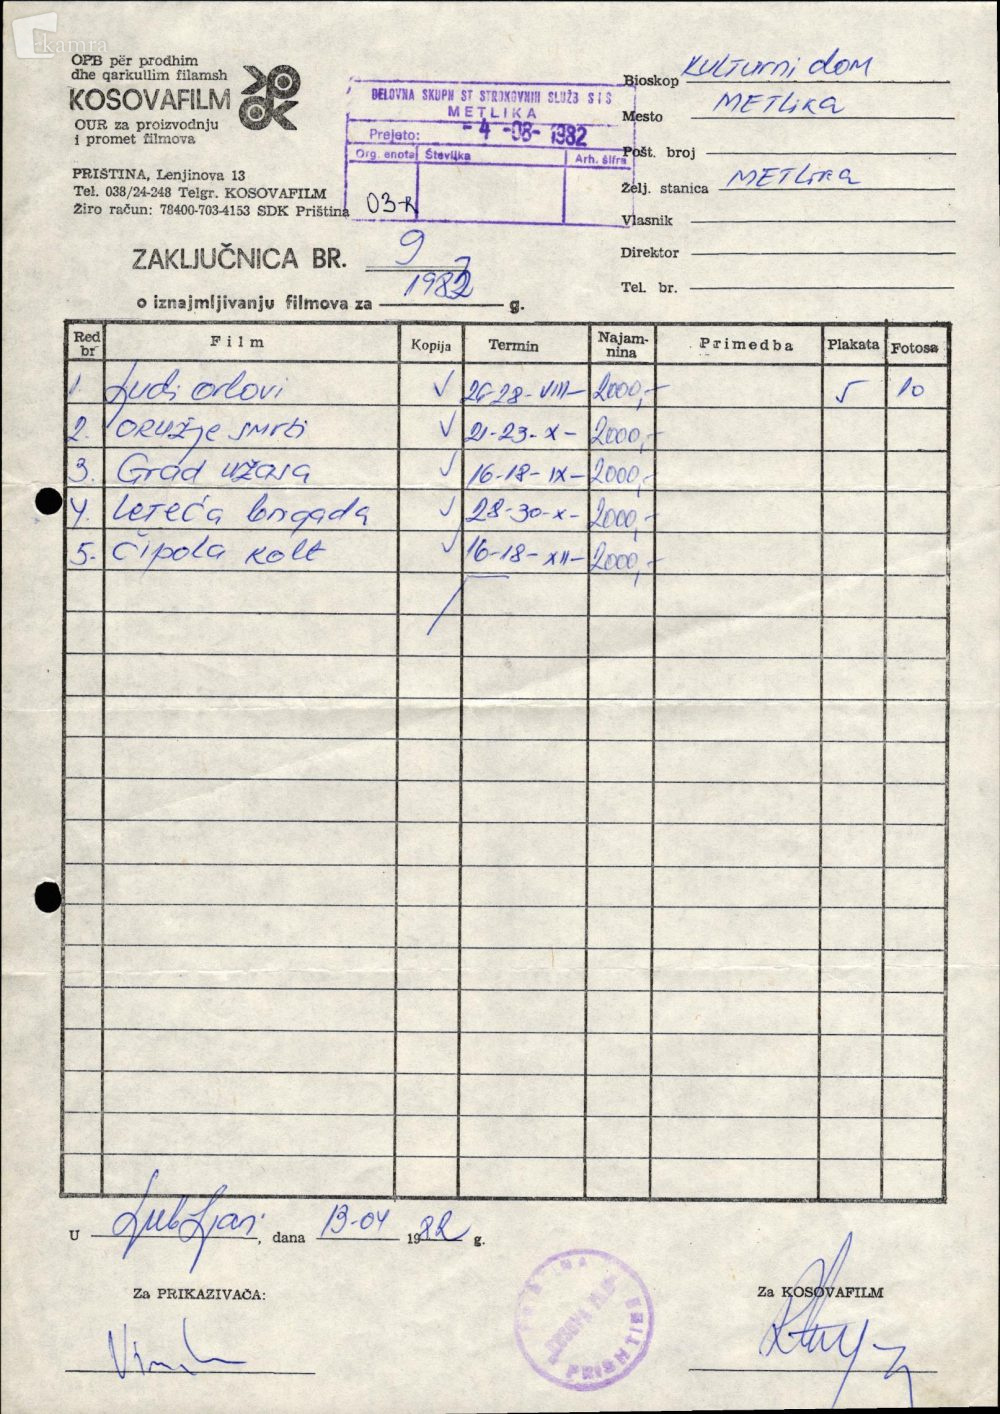 kamra
OPB për prodhim
dhe qarkullim filamsh
KOSOVAFILM
OUR za proizvodnju
i promet filmova
PRIŠTINA, Lenjinova 13
Tel. 038/24-248 Telgr. KOSOVAFILM
Žiro račun: 78400-703-4153 SDK Priština
DELOVNA SKUPN ST STROKOVNIH SLUŽB SIS
METLIKA
Prejeto: -4-08-1982
Org. enota Številka Arh. šifra
03-R
Bioskop Kulturni dom
Mesto METLIKA
Pošt. broj
Želj. stanica METLIKA
Vlasnik
Direktor
Tel. br.
ZAKLJUČNICA BR. 9
o iznajmljivanju filmova za 1982 g.
Red br Film Kopija Termin Najamnina Primedba Plakata Fotosa
1. Ljudi orlovi √ 26-28-VIII- 2000,- 5 10
2. ORUŽJE SMRTI √ 21-23-X- 2000,-
3. Grad užasa √ 16-18-IX- 2000,-
4. Leteća brigada √ 28-30-X- 2000,-
5. Čipola kolt √ 16-18-XII- 2000,-
U Ljubljani, dana 13-04 1982 g.
Za PRIKAZIVAČA:
Za KOSOVAFILM
PRISHTINE